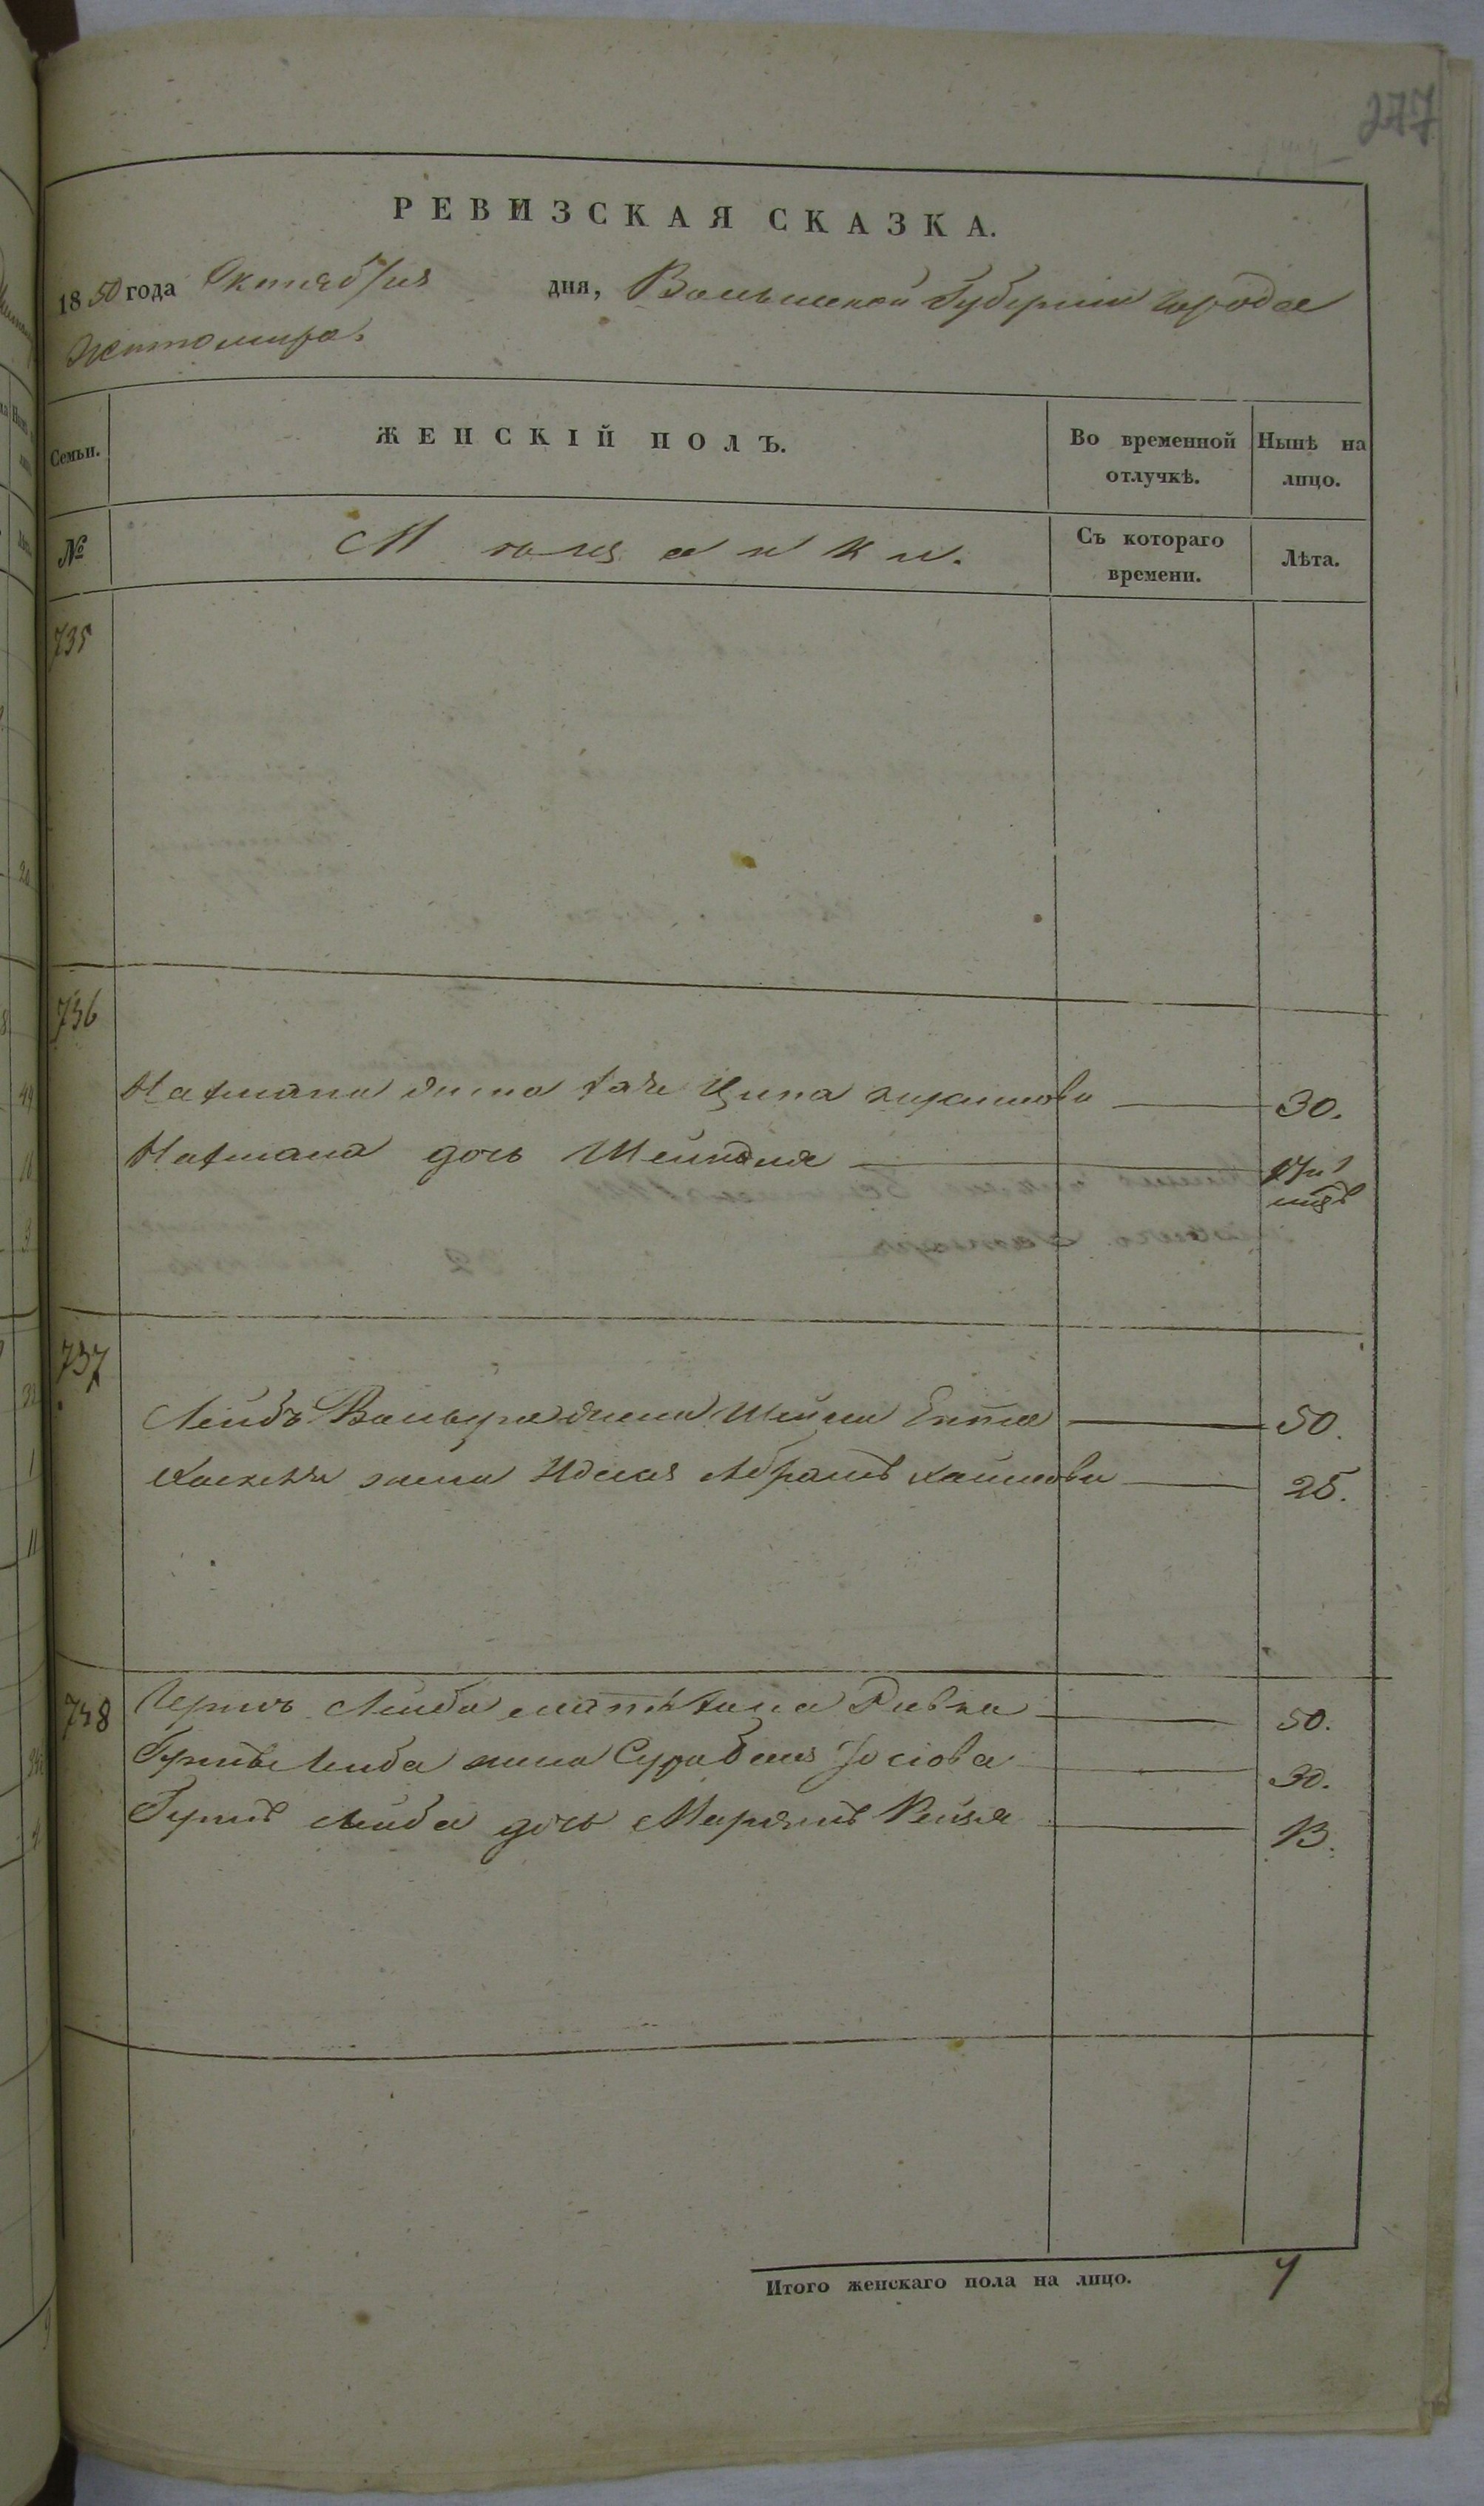 277
РЕВИЗСКАЯ СКАЗКА.
1850 года Октября дня, Волынской Губернии города
Житомира.
Семьи. ЖЕНСКІЙ ПОЛЪ. Во временной отлучкѣ. Нынѣ на лицо.
№ Мѣщанки. Съ котораго времени. Лѣта.
735
736
Нахмана жена Хая Ципа 30.
Нахмана дочь Шейндля
737
Лейбъ Вольфа жена Шейна Ента 50.
жена Идесья Абрамъ Хаимова 25.
738 Гершъ Лейба мать Хана Ривка 50.
Гершъ Лейба жена Сура Бейля Іосіова 30.
Гершъ Лейба дочь Марьямъ Рейзя 13.
Итого женскаго пола на лицо. 7